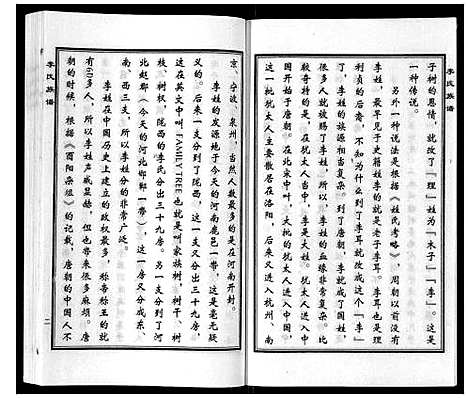 李氏族谱
子树的恩情，就改了「理」姓为「木子」——「李」。这是
一种传说。
另外一种说法是根据《姓氏考略》，周朝以前没有
李姓，最早见于史籍姓李的就是老子李耳。李耳也是理
利贞的后裔，不知为什么到了李耳就改成这个「李」
了。李姓的族源很多，而且很复杂。到了唐朝，李就成了国姓，
很多人就被赐了李姓，所以，李姓的血缘非常复杂。比
较奇特的是，李姓当中有一支是犹太人。犹太人进入中
国开始于唐朝。在北宋中叶，大批的犹太人进入中国。
这一批犹太人主要散居在洛阳，后来又进入杭州、南
京、宁波、泉州，当然人数最多的是在河南开封。
李姓的发源地于今天的河南鹿邑一带，这是毫无疑
义的。后来一支分到了陇西，这一支又分出三十九房，
这在英文中叫"FAMILY TREE"也就是叫家族树，树干、树
枝、树杈，陇西的李氏分出三十九房。另一支分到了河
北赵郡（今天的河北邯郸一带），这一房又分成东、
南、西三支，所以李姓分的非常广泛。
李姓在中国历史上建立的政权最多，称帝称王的就
有60多人，所以李姓声威显赫，但也带来很多麻烦。唐
朝的时候，根据《酉阳杂俎》的记载，唐朝的中国人不
李氏族谱
二